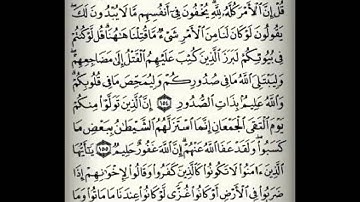 قُلْ إِنَّ ٱلْأَمْرَ كُلَّهُۥ لِلَّهِ يُخْفُونَ فِىٓ أَنفُسِهِم مَّا لَا يُبْدُونَ لَكَ
يَقُولُونَ لَوْ كَانَ لَنَا مِنَ ٱلْأَمْرِ شَىْءٌ مَّا قُتِلْنَا هَٰهُنَا قُل لَّوْ كُنتُمْ
فِى بُيُوتِكُمْ لَبَرَزَ ٱلَّذِينَ كُتِبَ عَلَيْهِمُ ٱلْقَتْلُ إِلَىٰ مَضَاجِعِهِمْ
وَلِيَبْتَلِىَ ٱللَّهُ مَا فِى صُدُورِكُمْ وَلِيُمَحِّصَ مَا فِى قُلُوبِكُمْ
وَٱللَّهُ عَلِيمٌۢ بِذَاتِ ٱلصُّدُورِ ١٥٤ إِنَّ ٱلَّذِينَ تَوَلَّوْا۟ مِنكُمْ
يَوْمَ ٱلْتَقَى ٱلْجَمْعَانِ إِنَّمَا ٱسْتَزَلَّهُمُ ٱلشَّيْطَٰنُ بِبَعْضِ مَا
كَسَبُوا۟ وَلَقَدْ عَفَا ٱللَّهُ عَنْهُمْ إِنَّ ٱللَّهَ غَفُورٌ حَلِيمٌ ١٥٥ يَٰٓأَيُّهَا
ٱلَّذِينَ ءَامَنُوا۟ لَا تَكُونُوا۟ كَٱلَّذِينَ كَفَرُوا۟ وَقَالُوا۟ لِإِخْوَٰنِهِمْ إِذَا
ضَرَبُوا۟ فِى ٱلْأَرْضِ أَوْ كَانُوا۟ غُزًّى لَّوْ كَانُوا۟ عِندَنَا مَا مَاتُوا۟ وَمَا